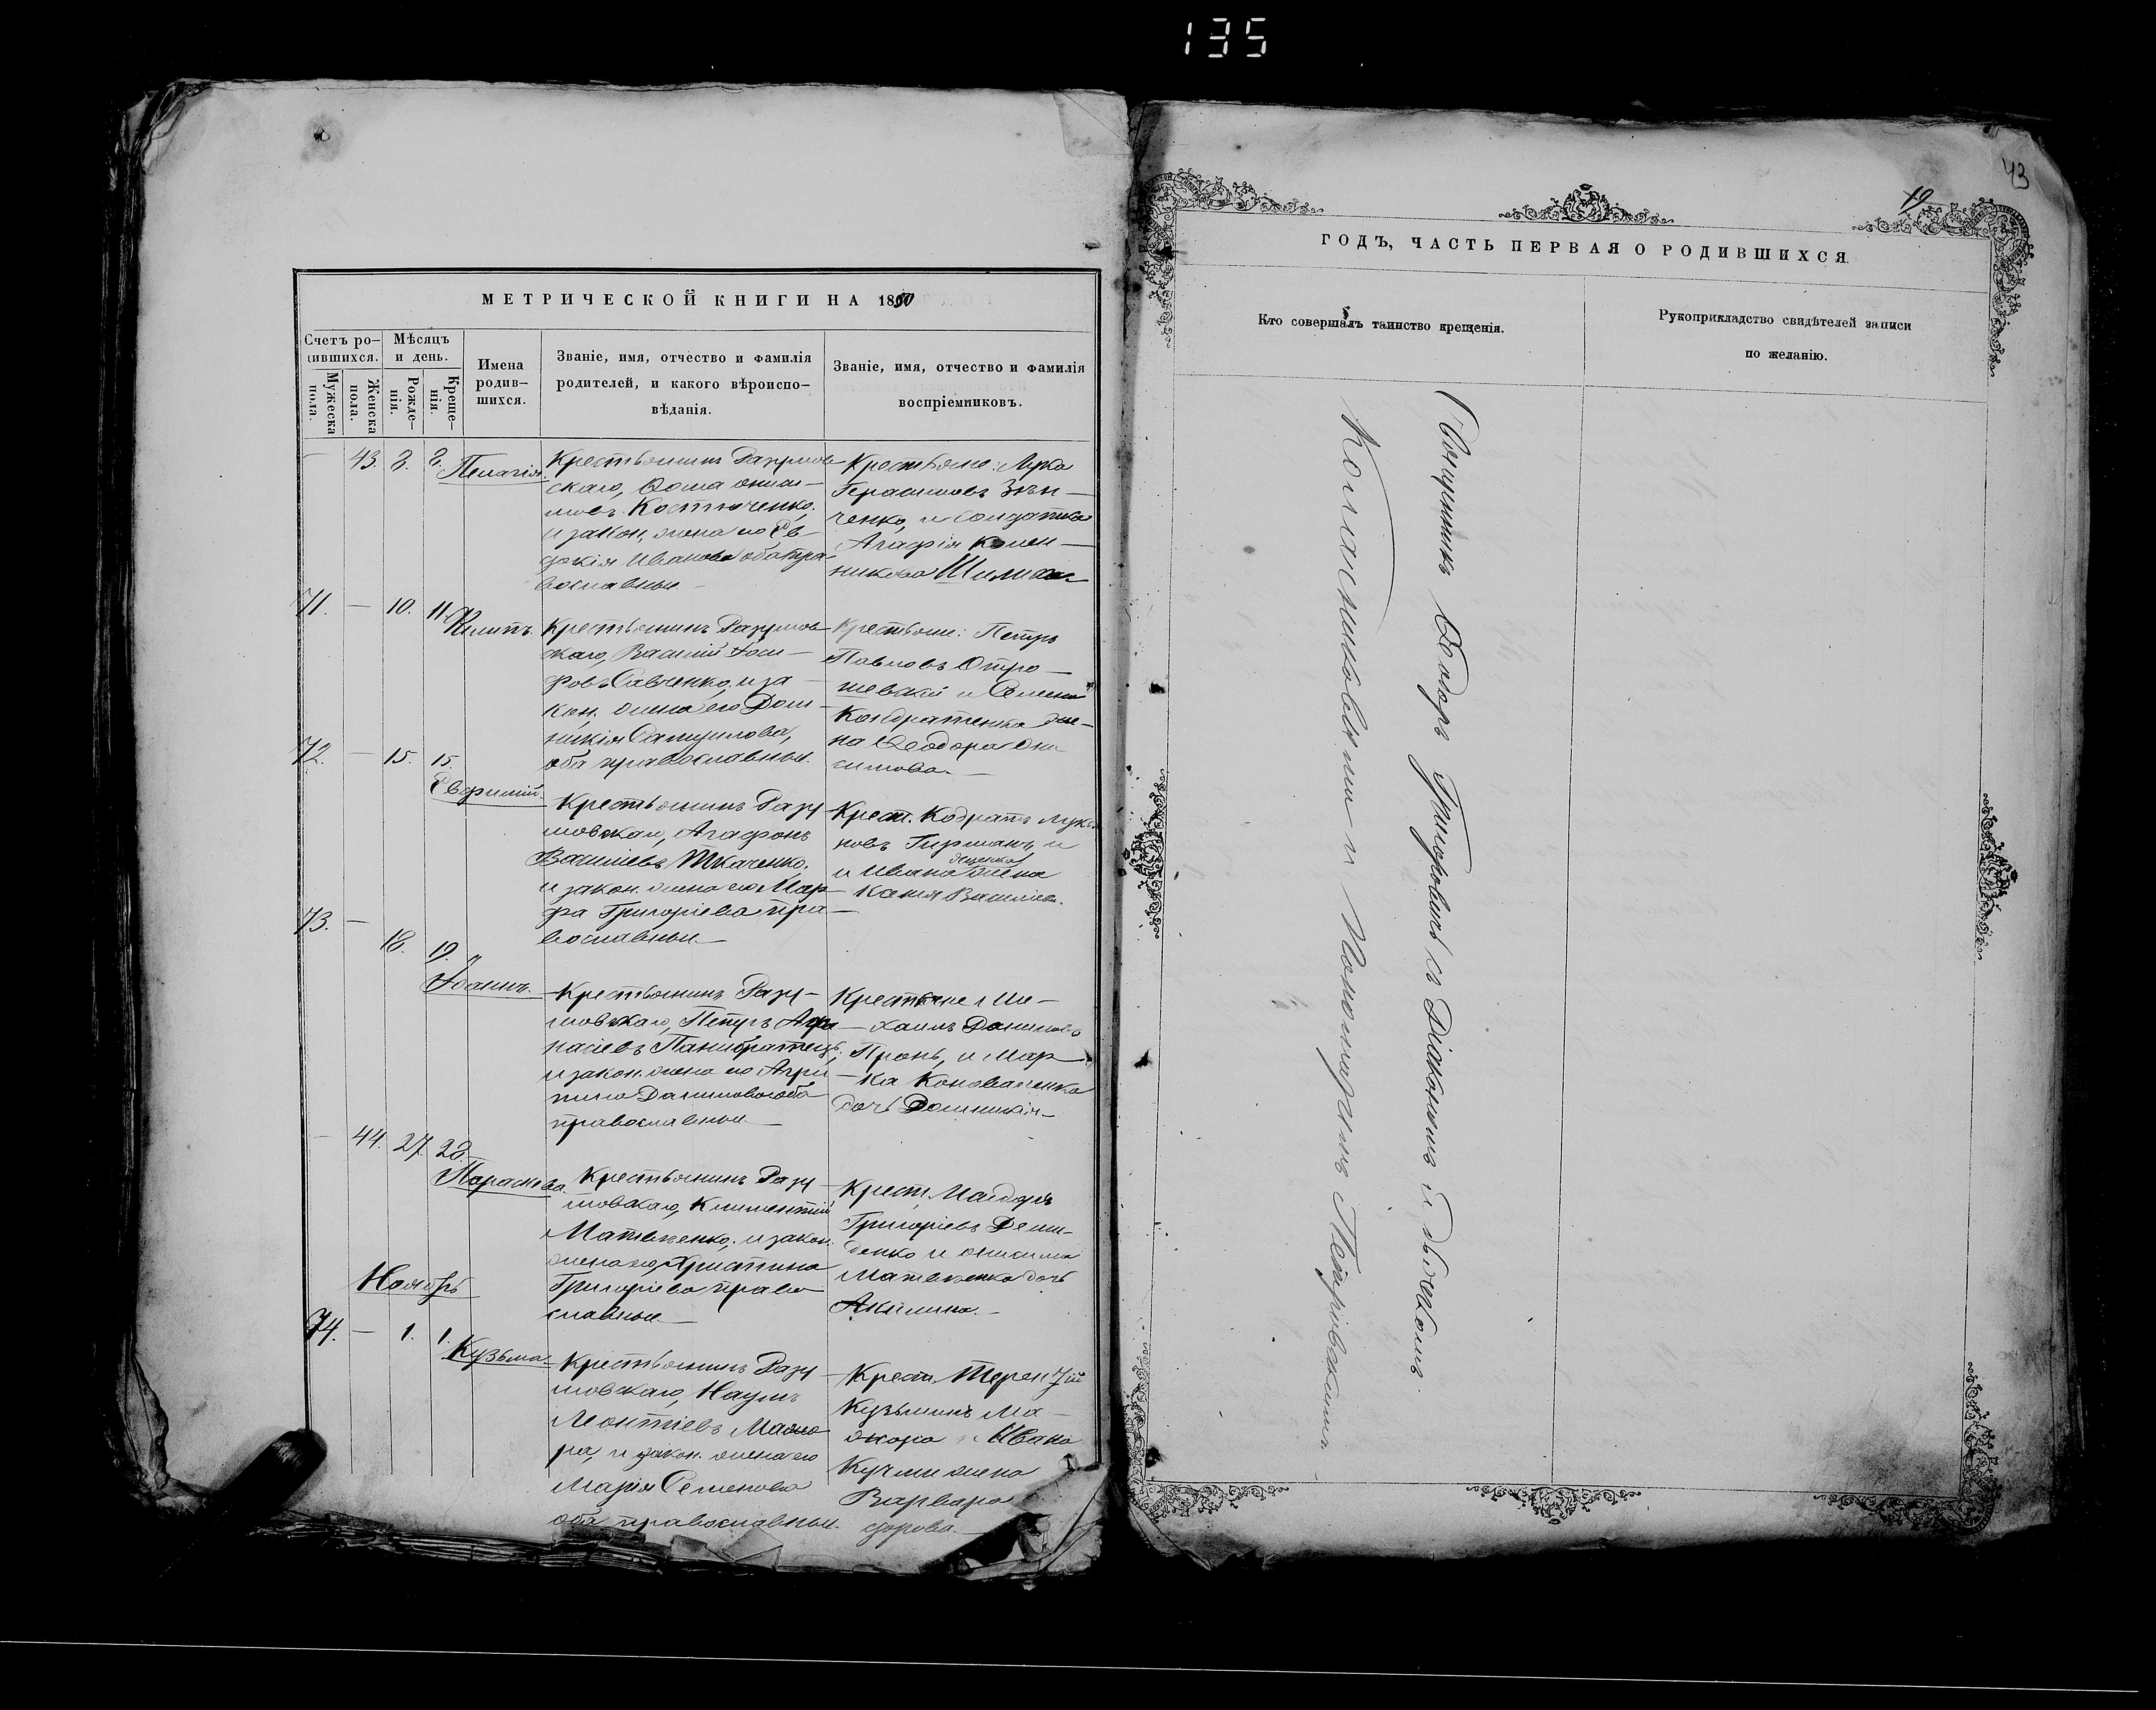 135
43
19
МЕТРИЧЕСКОЙ КНИГИ НА 1880
Счетъ ро-
дившихся.
Мужеска
пола.
Женска
пола.
Мѣсяцъ
и день.
Рожде-
нія.
Креще-
нія.
Имена
родив-
шихся.
Званіе, имя, отчество и фамилія
родителей, и какого вѣроиспо-
вѣданія.
Званіе, имя, отчество и фамилія
воспріемниковъ.
— 43. 8. 8. Пелагія.
Крестьянинъ Разумов
скаго, Ѳома Ониси-
мовъ Костюченко,
и закон. жена его Ев-
докія Иванова оба пра
вославные. —
Крестьяне: Лука
Герасимовъ Зѣн-
ченко, и солдатка
Агафія
71. — 10. 11. Филипъ.
Крестьянинъ Разумов
скаго, Василій Іоси-
фовъ Савченко, и за-
кон. жена его Дом-
никія Самуилова,
оба православные.
Крестьяне: Петръ
Павловъ Отро-
шевскій и Семена
Кондратенка же-
на Ѳеодора Они
симова. —
72. — 15. 15. Евфимій.
Крестьянинъ Разу-
мовскаго, Агафонъ
Василіевъ Ткаченко,
и закон. жена его Мар-
фа Григоріева пра-
вославные. —
Крест. Кодратъ Лукъ
новъ Гирманъ, и
и Ивана жена
Ксенія Василіев.
73. — 18. 19. Іоаннъ.
Крестьянинъ Разу-
мовскаго, Петръ Афа
насіевъ Панибратецъ,
и закон. жена его Агри
пина Данилова оба
православные. —
Крестьяне: Ми-
хаилъ Даниловъ
Пронь, и Мар-
ка Коноваленка
дочь Домникія.
— 44. 27. 28. Параскева.
Крестьянинъ Разу-
мовскаго, Климентій
Матвѣенко, и закон.
жена его Христина
Григоріева право
славные. —
Крест.
Григоріевъ Деми-
денко и Онисима
Матвѣенка дочь
Акилина. —
Ноябрь
74. — 1. 1. Кузьма.
Крестьянинъ Разу-
мовскаго, Наумъ
Леонтіевъ Мажа
ра, и закон. жена его
Марія Семенова
оба православные.
Крест. Терентій
Кузьминъ Ма-
жара и Ивана
Кучми жена
Варвара
дорова. —
ГОДЪ, ЧАСТЬ ПЕРВАЯ О РОДИВШИХСЯ
Кто совершалъ таинство крещенія.
Рукоприкладство свидѣтелей записи
по желанію.
Священникъ Ѳеодоръ Григоровичъ съ Діакономъ
и Пономаремъ Петровскимъ